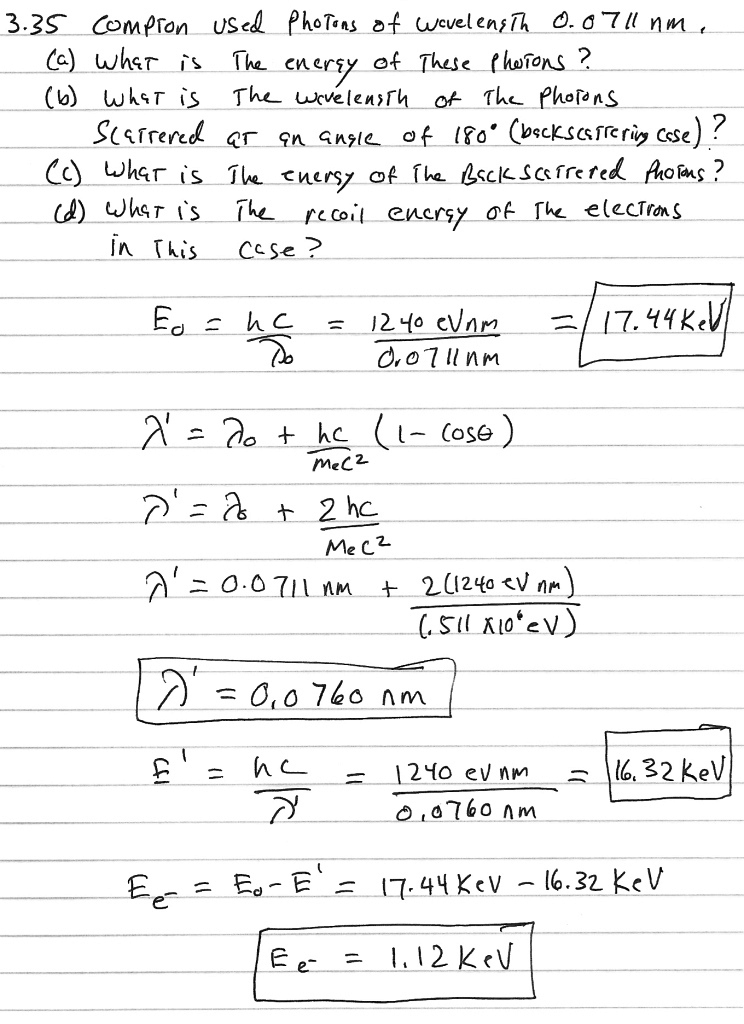 3.35 Compton used photons of wavelength 0.0711 nm.
(a) What is the energy of these photons?
(b) What is the wavelength of the photons
scattered at an angle of 180° (backscattering case)?
(c) What is the energy of the backscattered photons?
(d) What is the recoil energy of the electrons
in this case?
E₀ = hc/λ₀ = 1240 eVnm/0.0711nm = 17.44 KeV
λ' = λ₀ + hc/mec² (1 - cosθ)
λ' = λ₀ + 2hc/Mec²
λ' = 0.0711 nm + 2(1240 eV nm)/(.511 x10⁶ eV)
λ' = 0.0760 nm
E' = hc/λ' = 1240 ev nm/0.0760 nm = 16.32 KeV
Ee⁻ = E₀ - E' = 17.44 KeV - 16.32 KeV
Ee⁻ = 1.12 KeV